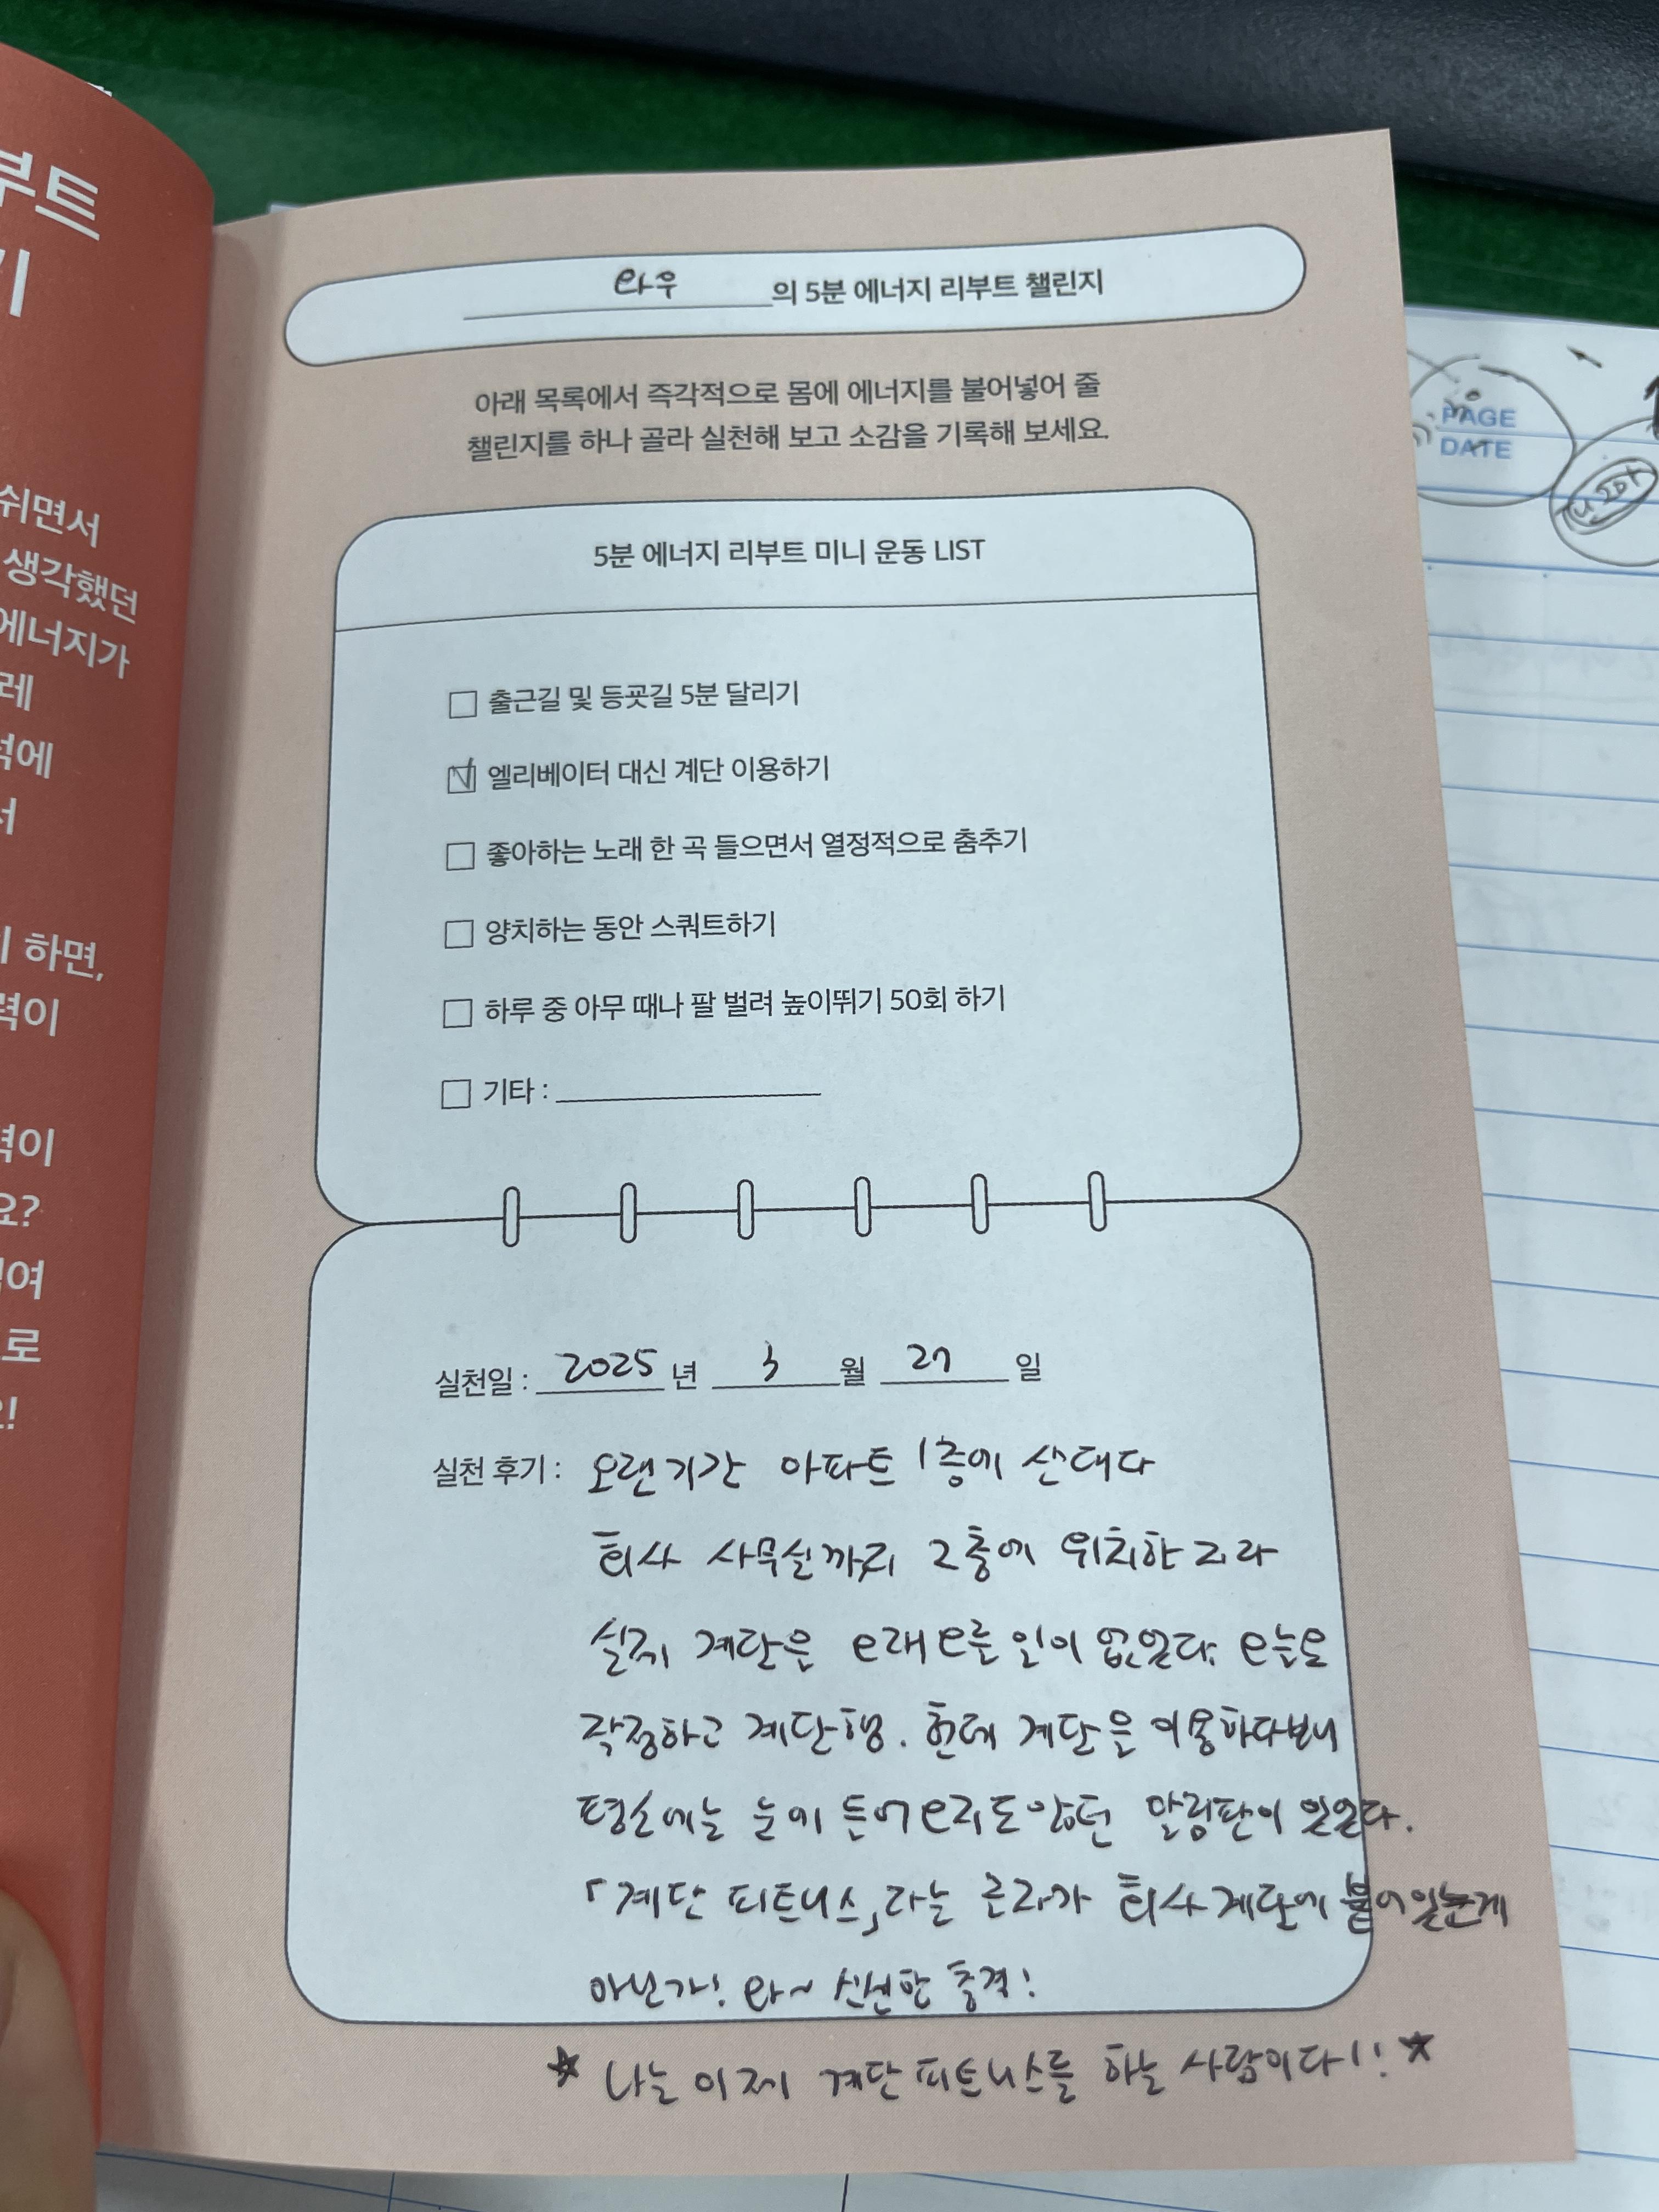 부트
기
쉬면서
생각했던
에너지가
레
에
서
하면,
력이
이
요?
여
로
요!
라우의 5분 에너지 리부트 챌린지
아래 목록에서 즉각적으로 몸에 에너지를 불어넣어 줄
챌린지를 하나 골라 실천해 보고 소감을 기록해 보세요.
5분 에너지 리부트 미니 운동 LIST
출근길 및 등굣길 5분 달리기
엘리베이터 대신 계단 이용하기
좋아하는 노래 한 곡 들으면서 열정적으로 춤추기
양치하는 동안 스쿼트하기
하루 중 아무 때나 팔 벌려 높이뛰기 50회 하기
기타 :
실천일 : 2025 년 3 월 27 일
실천 후기 : 오랜기간 아파트 1층에 산데다
회사 사무실까지 2층에 위치한지라
실제 계단은 오래 오를 일이 없었다. 오늘은
작정하고 계단행. 헌데 계단을 이용하다보니
평소에는 눈에 들어오지도 않던 알림판이 있었다.
「계단 피트니스」라는 글자가 회사계단에 붙어있는게
아닌가! 와~ 신선한 충격!
★ 나는 이제 계단피트니스를 하는 사람이다!! ★
PAGE
DATE